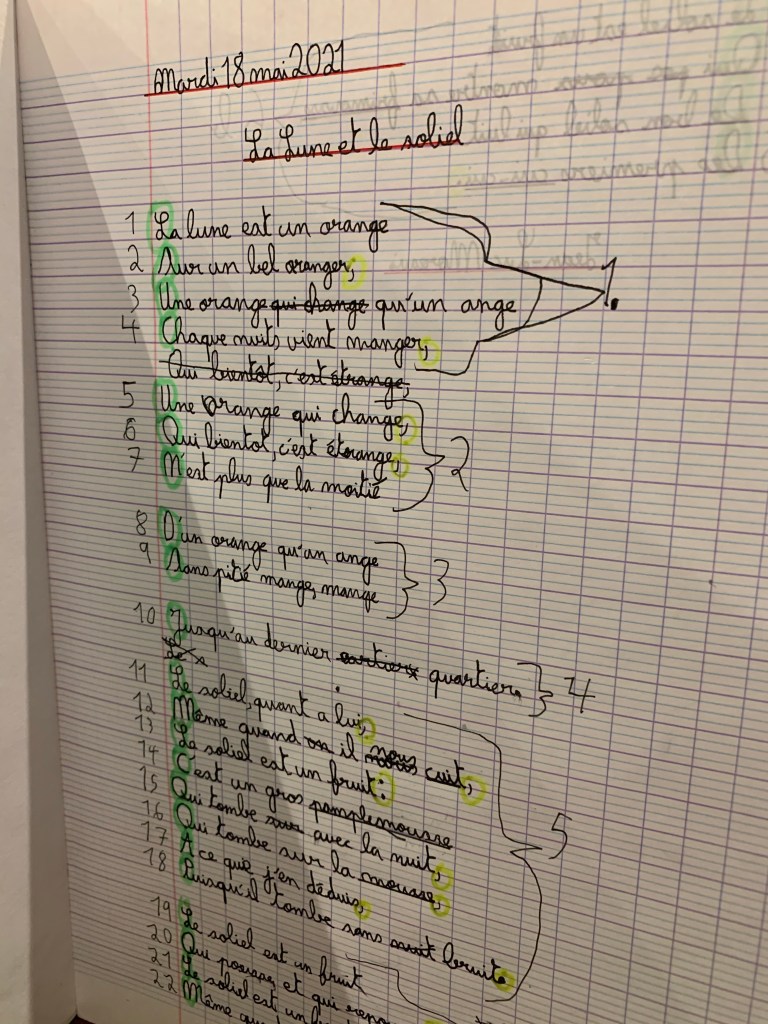 Mardi 18 mai 2021
La Lune et le soliel
1 La lune est un orange
2 Sur un bel oranger,
3 Une orange qui change qu'un ange
4 Chaque nuits vient manger,
Qui bientôt, c'est étrange,
5 Une orange qui change,
6 Qui bientot, c'est étrange,
7 N'est plus que la moitié
1.
2
8 D'un orange qu'un ange
9 Sans pitié mange, mange
3
10 Jusqu'au dernier quartier.
4
11 Le soliel, quant a lui,
12 Même quand il nous cuit,
13 Le soliel est un fruit:
14 C'est un gros pamplemousse
15 Qui tombe avec la nuit,
16 Qui tombe sur la mousse,
17 A ce que j'en déduis,
18 Puisqu'il tombe sans bruit.
5
19 Le soliel est un fruit
20 Qui pousse et qui
21 Le soliel est un
22 Même